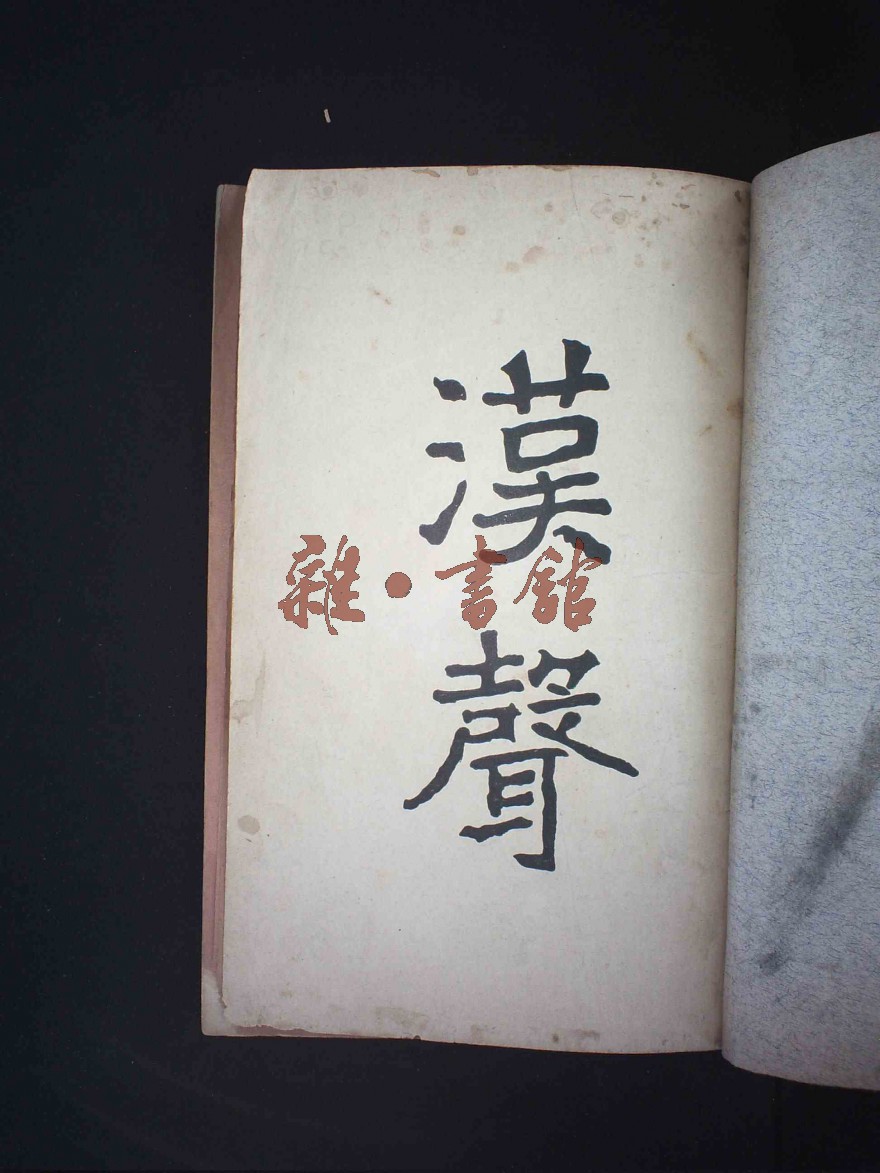 漢聲
雜·書館